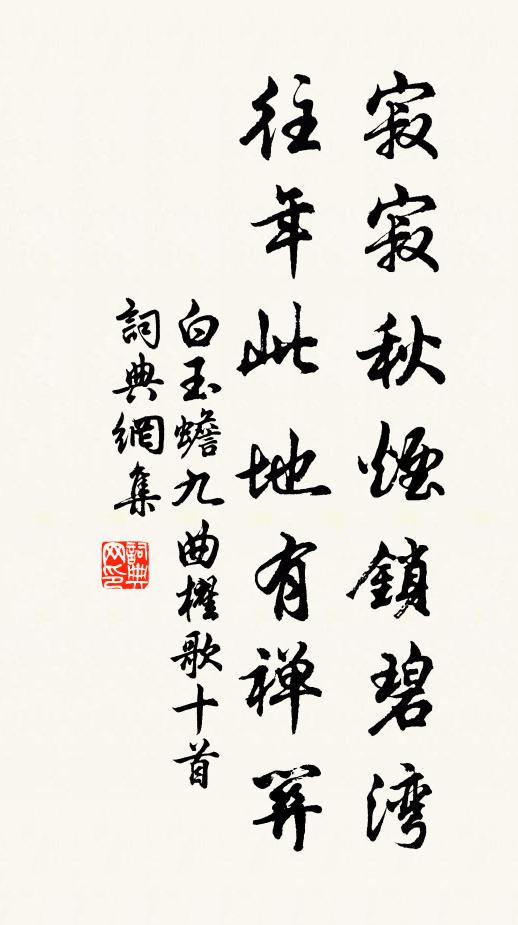 寂寂秋煙鎖碧湾
往年此地有禅関
白玉蟾九曲櫂歌十首
詞典網集
詞典网印